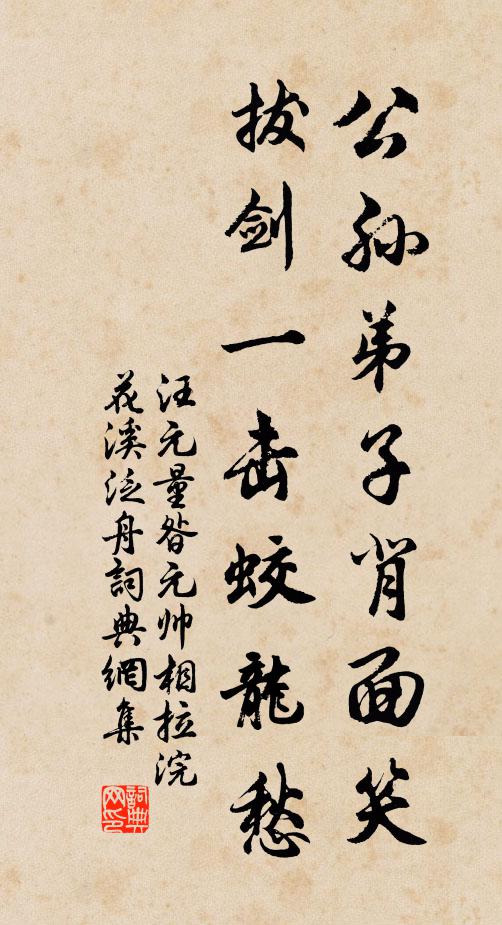 公孙弟子背面笑
拔剑一击蛟龍愁
汪元量昝元帅相拉浣
花溪泛舟詞典網集
詞典
网印